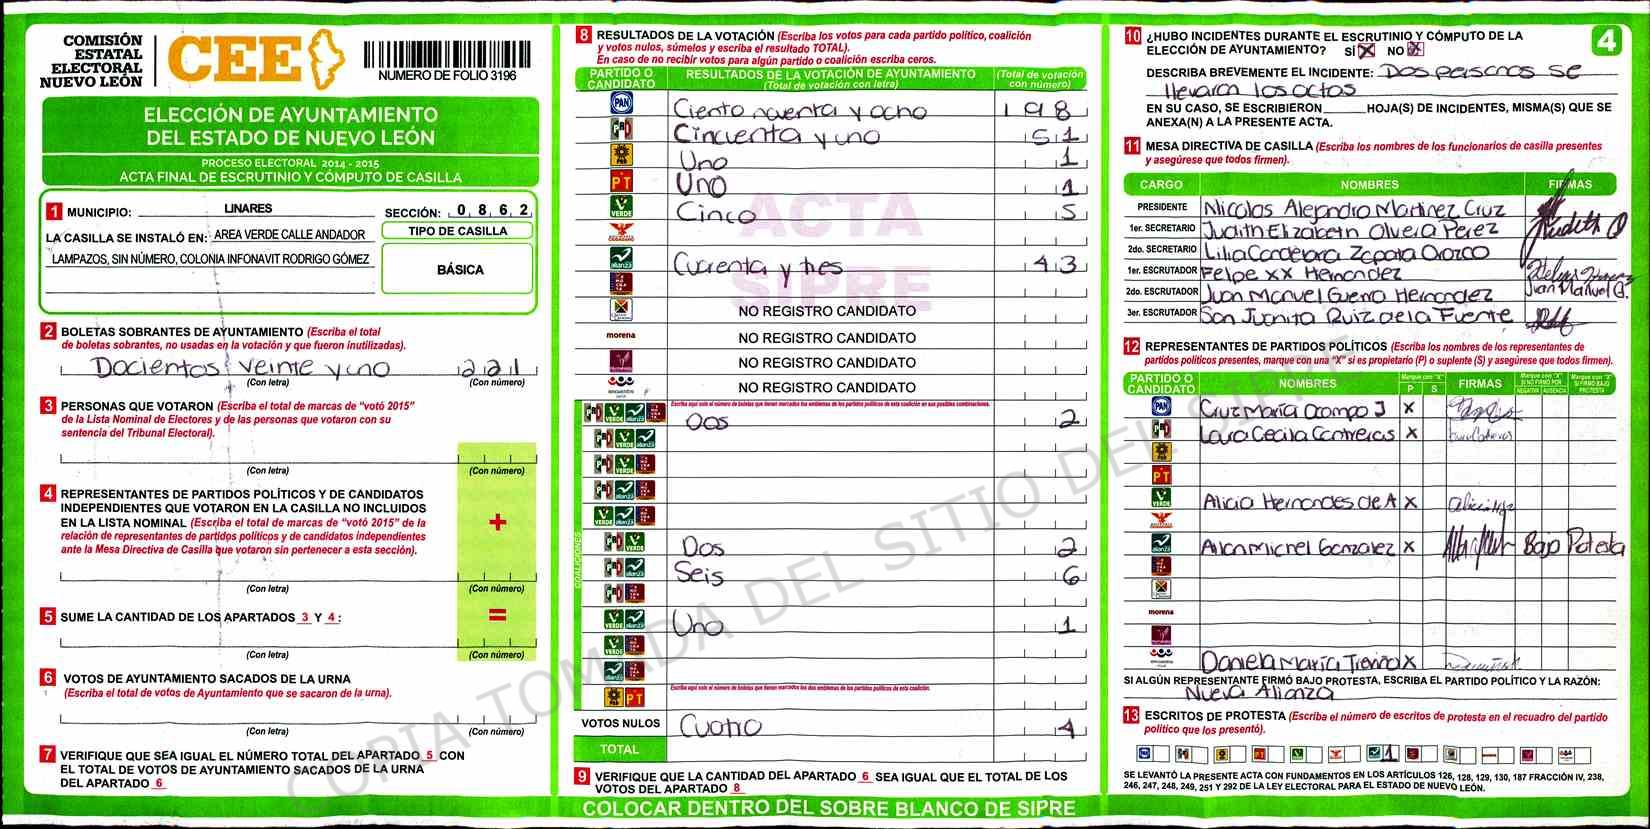 COMISIÓN
ESTATAL
ELECTORAL
NUEVO LEÓN
CEE
NUMERO DE FOLIO 3196
ELECCIÓN DE AYUNTAMIENTO
DEL ESTADO DE NUEVO LEÓN
PROCESO ELECTORAL 2014 - 2015
ACTA FINAL DE ESCRUTINIO Y CÓMPUTO DE CASILLA
1 MUNICIPIO: LINARES SECCIÓN: 0 8 6 2
LA CASILLA SE INSTALÓ EN: AREA VERDE CALLE ANDADOR
LAMPAZOS, SIN NÚMERO, COLONIA INFONAVIT RODRIGO GÓMEZ
TIPO DE CASILLA
BÁSICA
2 BOLETAS SOBRANTES DE AYUNTAMIENTO (Escriba el total
de boletas sobrantes, no usadas en la votación y que fueron inutilizadas).
Docientos veinte y uno 221
(Con letra) (Con número)
3 PERSONAS QUE VOTARON (Escriba el total de marcas de "votó 2015"
de la Lista Nominal de Electores y de las personas que votaron con su
sentencia del Tribunal Electoral).
(Con letra) (Con número)
4 REPRESENTANTES DE PARTIDOS POLÍTICOS Y DE CANDIDATOS
INDEPENDIENTES QUE VOTARON EN LA CASILLA NO INCLUIDOS
EN LA LISTA NOMINAL (Escriba el total de marcas de "votó 2015" de la
relación de representantes de partidos políticos y de candidatos independientes
ante la Mesa Directiva de Casilla que votaron sin pertenecer a esta sección).
+
(Con letra) (Con número)
5 SUME LA CANTIDAD DE LOS APARTADOS 3 Y 4 :
=
(Con letra) (Con número)
6 VOTOS DE AYUNTAMIENTO SACADOS DE LA URNA
(Escriba el total de votos de Ayuntamiento que se sacaron de la urna).
(Con letra) (Con número)
7 VERIFIQUE QUE SEA IGUAL EL NÚMERO TOTAL DEL APARTADO 5 CON
EL TOTAL DE VOTOS DE AYUNTAMIENTO SACADOS DE LA URNA
DEL APARTADO 6
8 RESULTADOS DE LA VOTACIÓN (Escriba los votos para cada partido político, coalición
y votos nulos, súmelos y escriba el resultado TOTAL).
En caso de no recibir votos para algún partido o coalición escriba ceros.
PARTIDO O CANDIDATO RESULTADOS DE LA VOTACIÓN DE AYUNTAMIENTO (Total de votación con letra) (Total de votación con número)
PAN Ciento noventa y ocho 198
PRD Cincuenta y uno 51
Uno 1
PT Uno 1
VERDE Cinco 5
alianza Cuarenta y tres 43
NO REGISTRO CANDIDATO
morena NO REGISTRO CANDIDATO
NO REGISTRO CANDIDATO
encuentro NO REGISTRO CANDIDATO
Escriba aquí solo el número de boletas que tienen marcados los emblemas de los partidos políticos de esta coalición en sus posibles combinaciones.
Dos 2
COALICIONES
Dos 2
Seis 6
Uno 1
Escriba aquí solo el número de boletas que tienen marcados los dos emblemas de los partidos políticos de esta coalición.
VOTOS NULOS Cuatro 4
TOTAL
ACTA
SIPRE
9 VERIFIQUE QUE LA CANTIDAD DEL APARTADO 6 SEA IGUAL QUE EL TOTAL DE LOS
VOTOS DEL APARTADO 8
COLOCAR DENTRO DEL SOBRE BLANCO DE SIPRE
10 ¿HUBO INCIDENTES DURANTE EL ESCRUTINIO Y CÓMPUTO DE LA
ELECCIÓN DE AYUNTAMIENTO? SÍ X NO X
4
DESCRIBA BREVEMENTE EL INCIDENTE: Dos personas se
llevaron las actas
EN SU CASO, SE ESCRIBIERON HOJA(S) DE INCIDENTES, MISMA(S) QUE SE
ANEXA(N) A LA PRESENTE ACTA.
11 MESA DIRECTIVA DE CASILLA (Escriba los nombres de los funcionarios de casilla presentes
y asegúrese que todos firmen).
CARGO NOMBRES FIRMAS
PRESIDENTE Nicolas Alejandro Martinez Cruz
1er. SECRETARIO Judith Elizabeth Olvera Perez Judith O
2do. SECRETARIO Lilia Candelaria Zapata Orozco
1er. ESCRUTADOR Felpe xx Hernandez
2do. ESCRUTADOR Juan Manuel Guerra Hernandez Juan Manuel G.
3er. ESCRUTADOR San Juanita Ruiz de la Fuente
12 REPRESENTANTES DE PARTIDOS POLÍTICOS (Escriba los nombres de los representantes de
partidos políticos presentes, marque con una "X" si es propietario (P) o suplente (S) y asegúrese que todos firmen).
PARTIDO O CANDIDATO NOMBRES Marque con "X" P S FIRMAS Marque con "X" SI NO FIRMÓ POR NEGATIVA AUSENCIA Marque con "X" SI FIRMÓ BAJO PROTESTA
PAN Cruz María Ocampo J X
Lara Cecilia Contreras X
PT
VERDE Alicia Hernandes de A X
alianza Allan Michel Gonzalez X Bajo Protesta
morena
encuentro Daniela María Treviño X
SI ALGÚN REPRESENTANTE FIRMÓ BAJO PROTESTA, ESCRIBA EL PARTIDO POLÍTICO Y LA RAZÓN:
Nueva Alianza
13 ESCRITOS DE PROTESTA (Escriba el número de escritos de protesta en el recuadro del partido
político que los presentó).
1
SE LEVANTÓ LA PRESENTE ACTA CON FUNDAMENTOS EN LOS ARTÍCULOS 126, 128, 129, 130, 187 FRACCIÓN IV, 238,
246, 247, 248, 249, 251 Y 292 DE LA LEY ELECTORAL PARA EL ESTADO DE NUEVO LEÓN.
COPIA TOMADA DEL SITIO DEL SIPRE